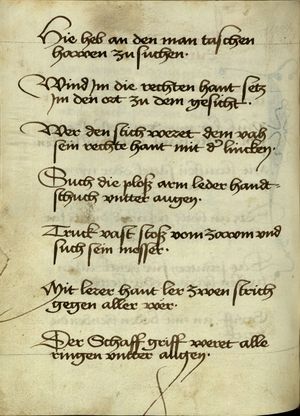 Hie heb an den man taschen
howen zu suchen ·
Wind Im die rechten hant setz
Im den ort zu dem gesicht ·
Wer den stich weret dem vah
sein rechte hant mit d' lincken ·
Such die ploß arm leder handt-
schuch vntter augen ·
Truck vast stoß vom zorom vnd
such sein messer ·
Mit lerer hant ler zwen strich
gegen aller wer ·
Der Schaff griff weret alle
ringen vntter augen ·